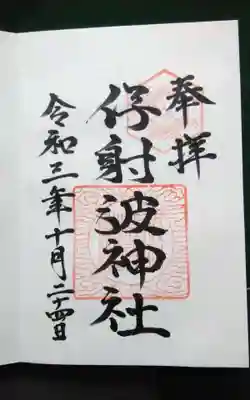 奉拝
保射波神社
令和三年十月二十四日